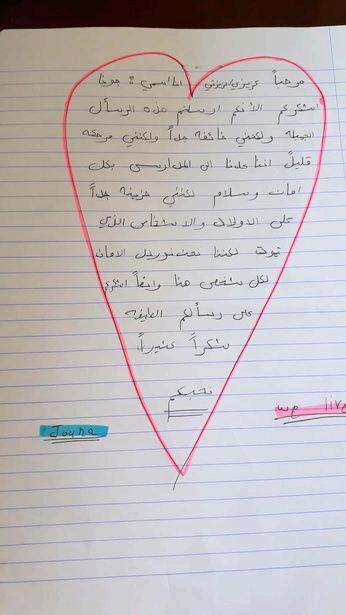 مرحباً عزيزي/عزيزتي انا اسمي : جونا
اشكركم لأنكم ارسلتم هذه الرسأل
الجميلة ولكنني خائفه جداً ولكنني
قليلً اننا عدنا الى المدارس بكل
امان وسلام لكنني حزينه جداً
على الاولاد والاشخاص الذي
تموت لكننا نحن نوريد الامان
لكل شخص هنا وايضاً اشكركم
على رسألكم الطيفه
شكراً كثيراً
نحبكم
we live
Jouna